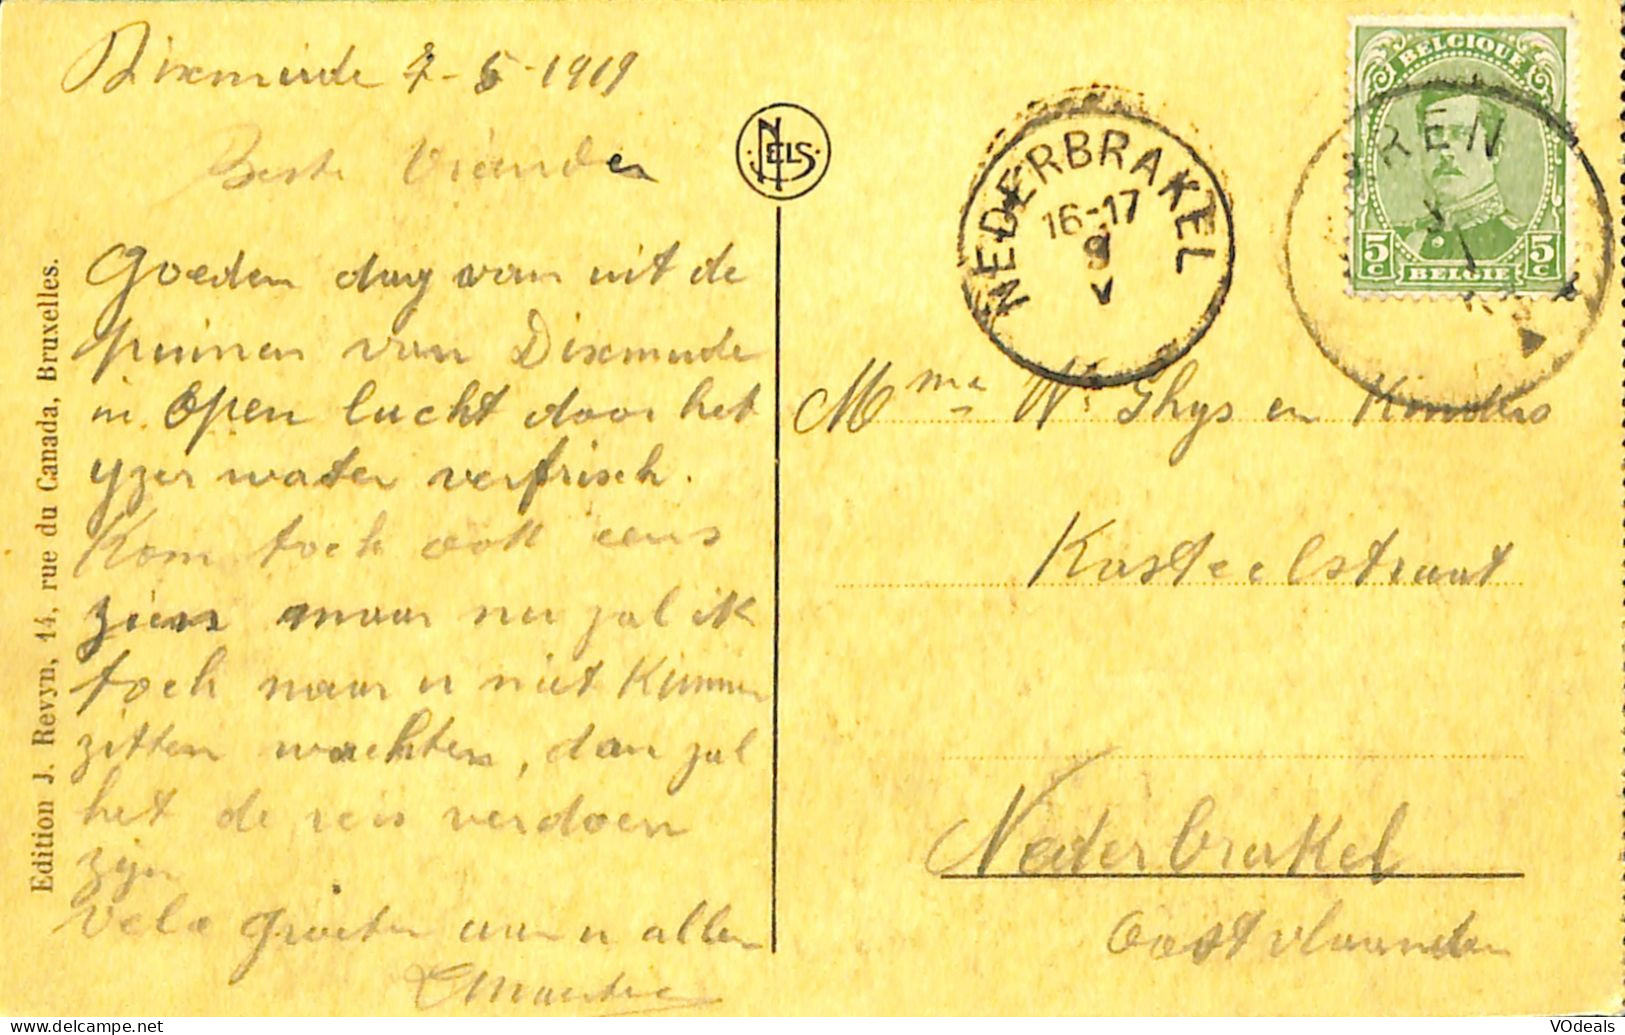 Dixmuide 7-5-1919
Beste Vrienden
Goeden dag van uit de
puinen van Dixmude
in open lucht door het
yzer water verfrisch.
Kom toch ook eens
zien maar nu zal ik
toch naar u niet kunnen
zitten wachten, dan zal
het de reis verdoen
zijn
Vele groeten aan u allen
Edition J. Revyn, 14, rue du Canada, Bruxelles.
NELS
NEDERBRAKEL
16-17
9
V
BELGIQUE
5c 5c
BELGIË
Mme W. Ghys en Kinders
Kasteelstraat
Nederbrakel
Oostvlaanderen
VOdeals